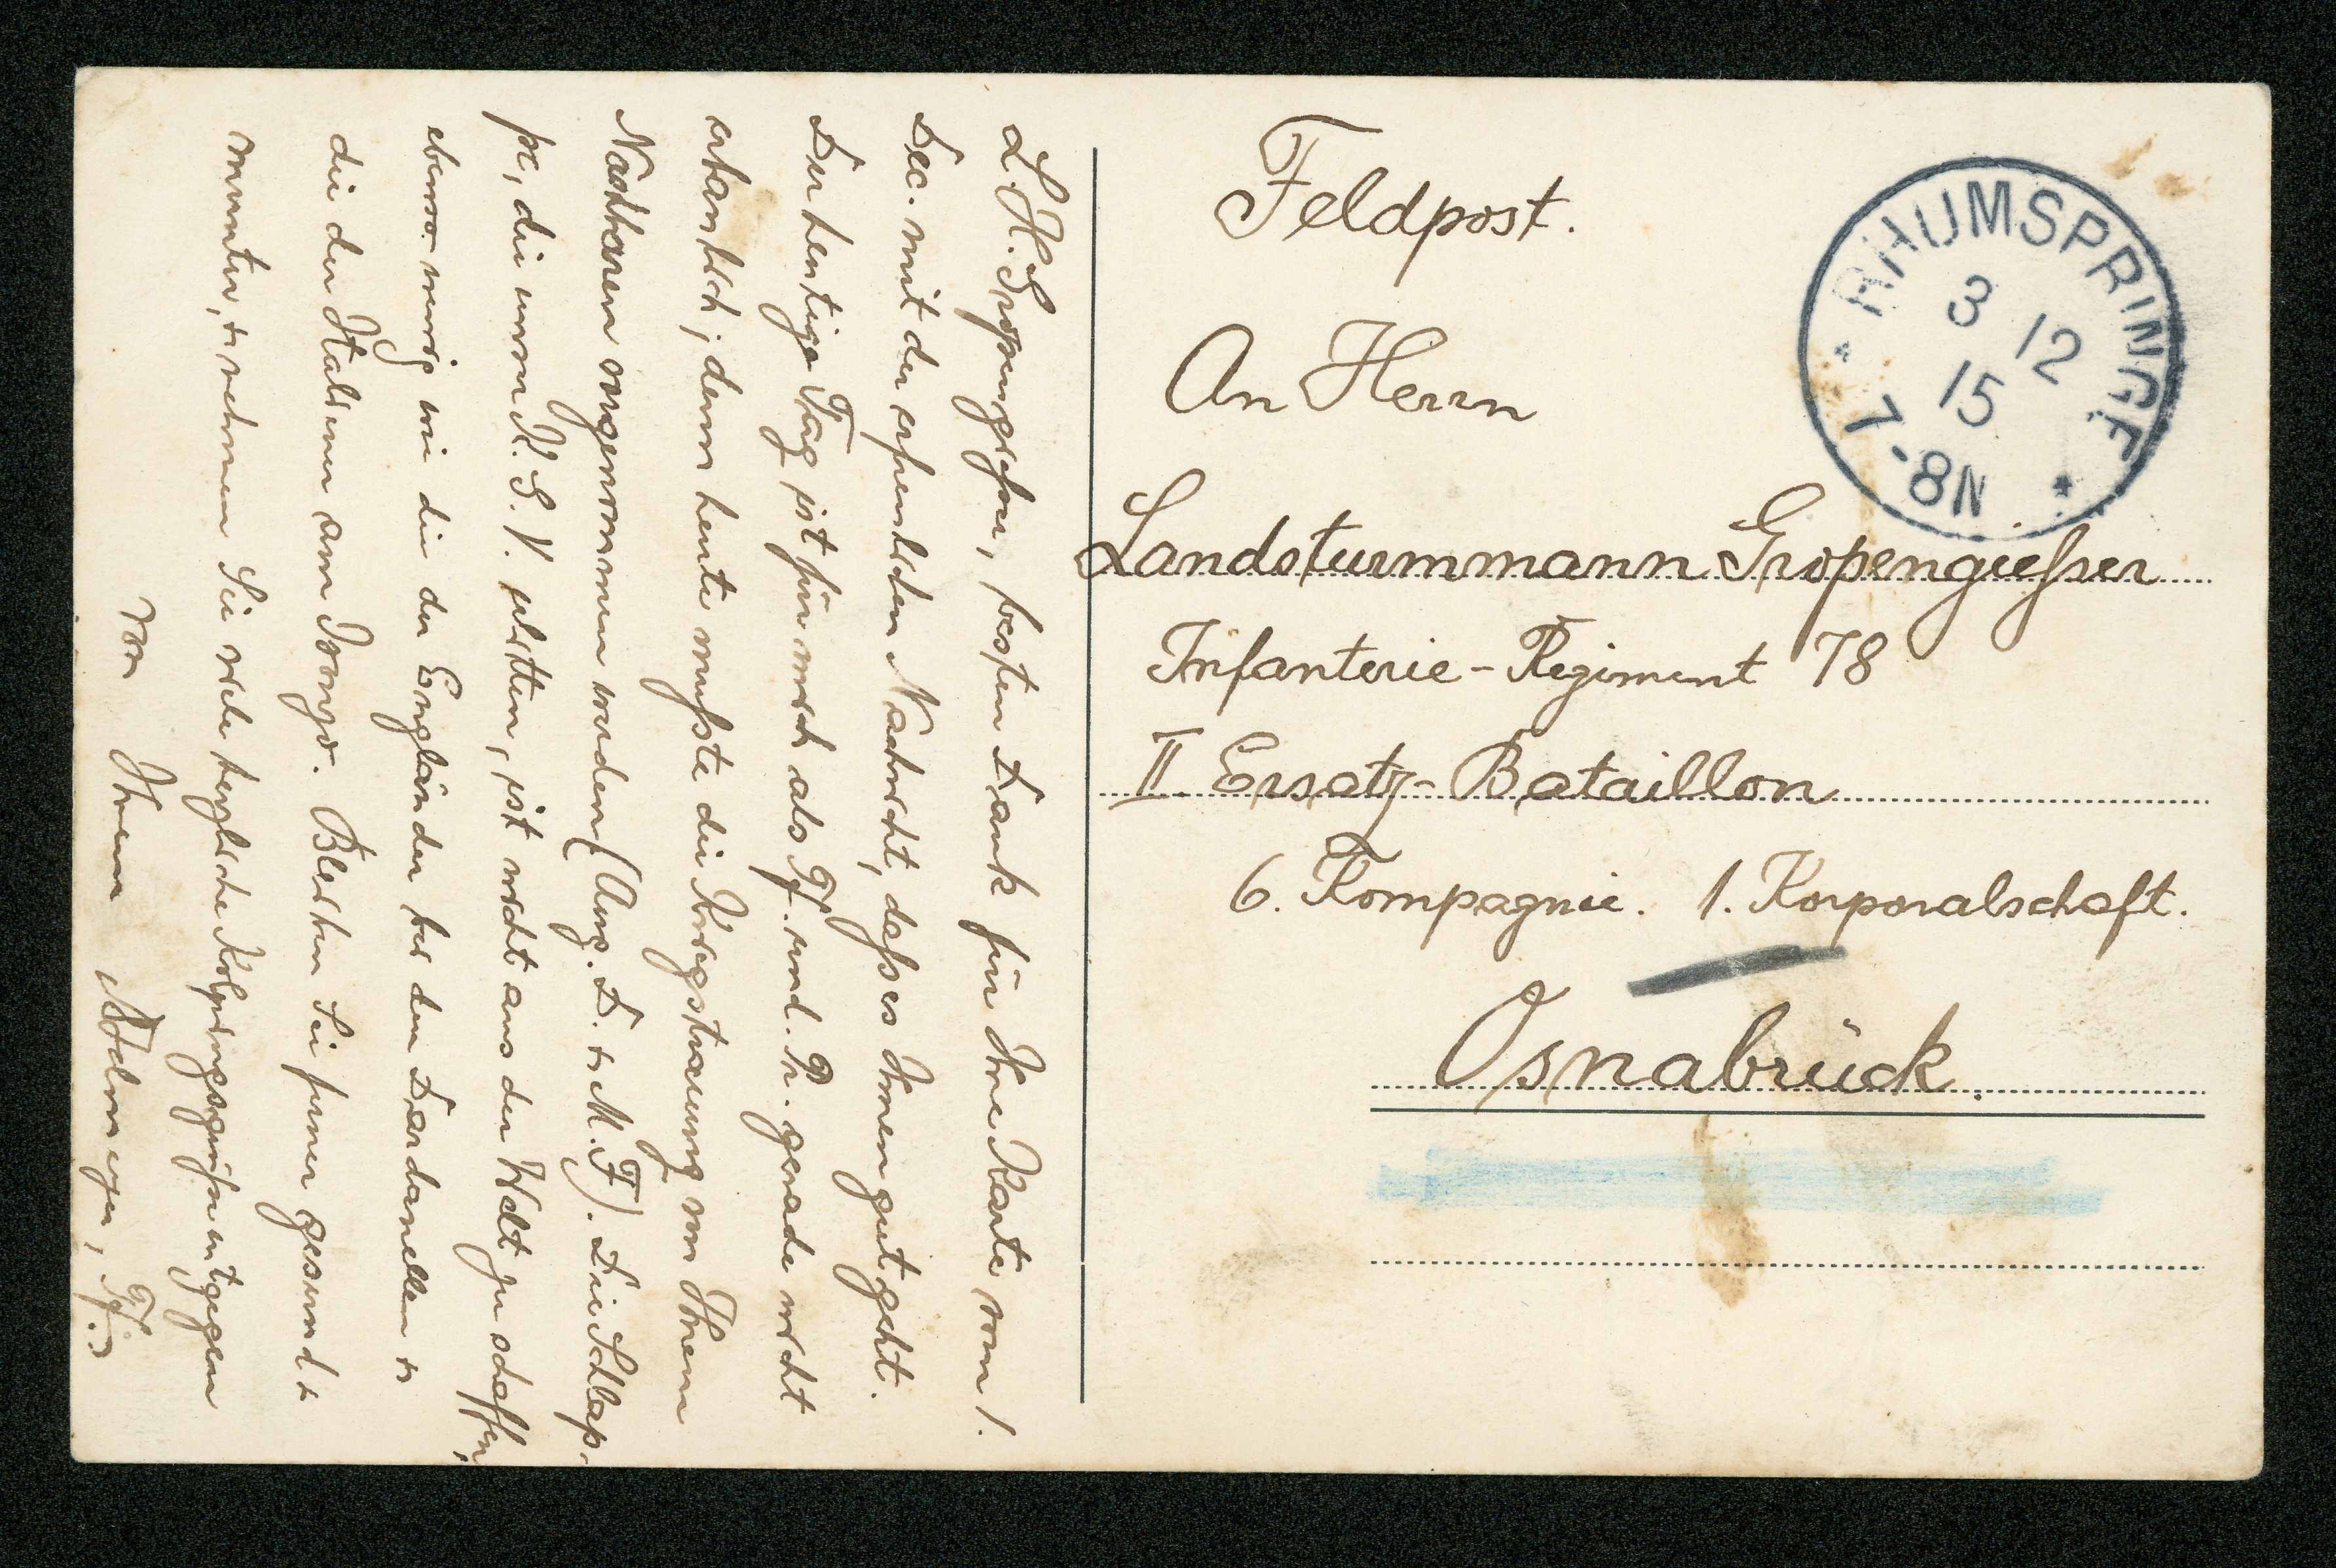 Feldpost.
RHUMSPRINGE
3 12
15
7-8N
An Herrn
Landsturmmann Gropengießer
Infanterie-Regiment 78
II. Ersatz-Bataillon
6. Kompagnie. 1. Korporalschaft.
Osnabrück.
L. H. Gropengießer, besten Dank für Ihre Karte vom 1.
Dec. mit der erfreulichen Nachricht, daß es Ihnen gut geht.
Der heutige Tag ist für mich als Pf. und Pr. gerade nicht
erbaulich; denn heute mußte die Kriegstrauung von Ihrem
Nachbaren vorgenommen werden (Aug. D. + M. F). Die Schlap-
pe, die unser K. S. V. erlitten, ist nicht aus der Welt zu schaffen,
ebenso wenig wie die der Engländer bei den Dardanellen +
die der Italiener am Isonzo. Bleiben Sie ferner gesund +
munter, + nehmen Sie viele herzliche Kolpingsgrüße entgegen
von Ihrem Pf.